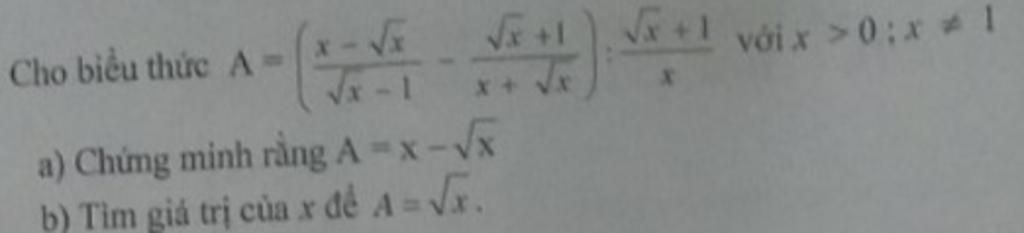 Cho biểu thức A = ( (x − √x)/(√x − 1) − (√x + 1)/(x + √x) ) : (√x + 1)/x với x > 0 ; x ≠ 1
a) Chứng minh rằng A = x − √x
b) Tìm giá trị của x để A = √x .